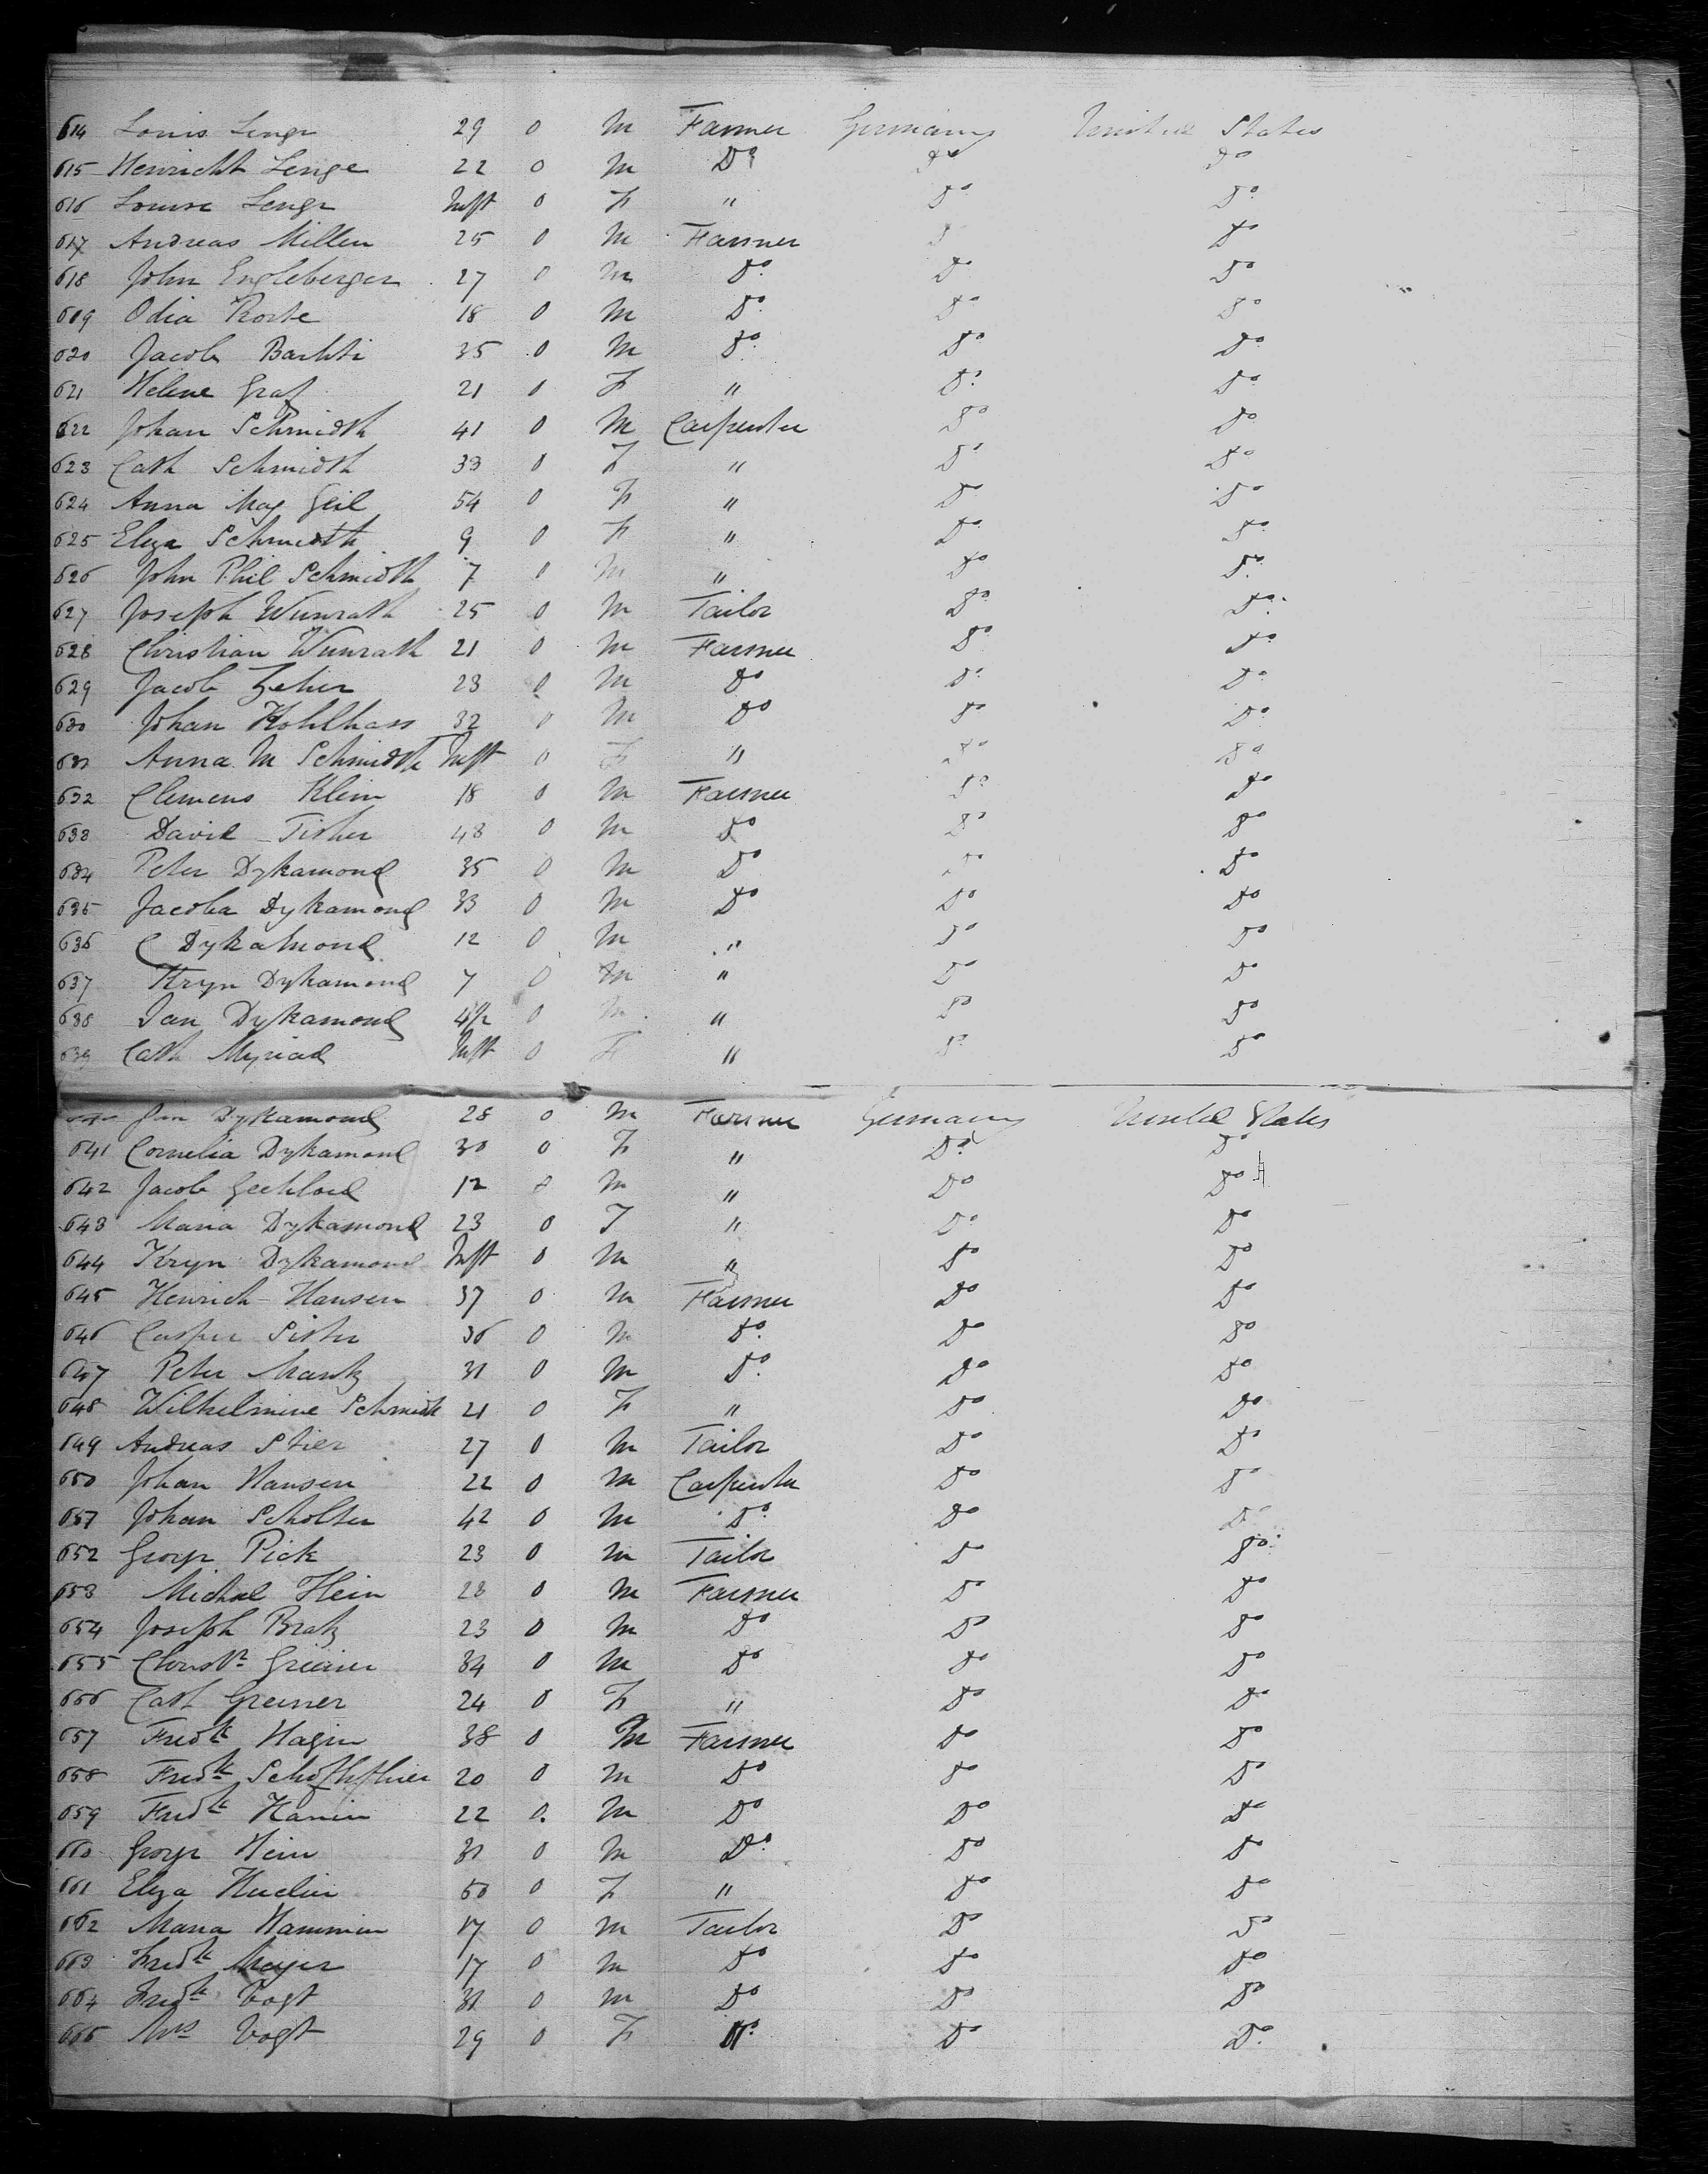 614 Louis Lenge 29 0 M Farmer Germany United States
615 Henricht Lenge 22 0 M Do Do Do
616 Louise Lenge Inft 0 F " Do Do
617 Andreas Miller 25 0 M Farmer D Do
618 John Engleberger 27 0 M Do Do Do
619 Odia Rorte 18 0 M Do Do Do
620 Jacob Barhti 35 0 M Do Do Do
621 Helene Graf 21 0 F " Do Do
622 Johan Schmidth 41 0 M Carpenter Do Do
623 Cath Schmidth 33 0 F " Do Do
624 Anna Mag Geil 54 0 F " Do Do
625 Eliza Schmidth 9 0 F " Do Do
626 John Phil Schmidth 7 0 M " Do Do
627 Joseph Wunrath 25 0 M Tailor Do Do
628 Christian Wunrath 21 0 M Farmer Do Do
629 Jacob Zeher 23 0 M Do Do Do
630 Johan Kohlhass 32 0 M Do Do Do
631 Anna M Schmidth Inft 0 F " Do Do
632 Clemens Klein 18 0 M Farmer Do Do
633 David Fisher 48 0 M Do Do Do
634 Peter Dykamond 35 0 M Do Do Do
635 Jacoba Dykamond 33 0 M Do Do Do
636 C Dykamond 12 0 M " Do Do
637 Kryn Dykamond 7 0 M " Do Do
638 Jan Dykamond 4½ 0 M " Do Do
639 Cath Myriad Inft 0 F " Do Do
Jan Dykamond 28 0 M Farmer Germany United States
641 Cornelia Dykamond 30 0 F " Do Do
642 Jacob 12 0 M " Do Do
643 Maria Dykamond 23 0 F " Do Do
644 Kryn Dykamond Inft 0 M " Do Do
645 Heinrich Hansen 37 0 M Farmer Do Do
646 Casper Sister 36 0 M Do Do Do
647 Peter Mantz 31 0 M Do Do Do
648 Wilhelmine Schmidt 21 0 F " Do Do
649 Andreas Stier 27 0 M Tailor Do Do
650 Johan Hansen 22 0 M Carpenter Do Do
651 Johan Scholter 42 0 M Do Do Do
652 George Pick 23 0 M Tailor Do Do
653 Michael Hein 28 0 M Farmer Do Do
654 Joseph Bratz 23 0 M Do Do Do
655 Christn Greiner 34 0 M Do Do Do
656 Cath Greiner 24 0 F " Do Do
657 Fredk Hagin 38 0 M Farmer Do Do
658 Fredk 20 0 M Do Do Do
659 Fredk Hanin 22 0 M Do Do Do
660 George Hein 31 0 M Do Do Do
661 Eliza 50 0 F " Do Do
662 Maria Hammin 17 0 M Tailor Do Do
663 Fredk Meyer 17 0 M Do Do Do
664 Fredk Vogt 31 0 M Do Do Do
665 Mrs Vogt 29 0 F Do Do